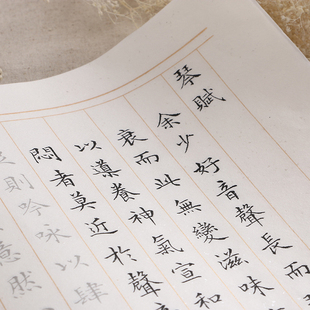 琴賦
余少好音聲長而
衰而此無變滋味
以導養神氣宣和
悶者莫近於聲音
則吟詠以肆
意然